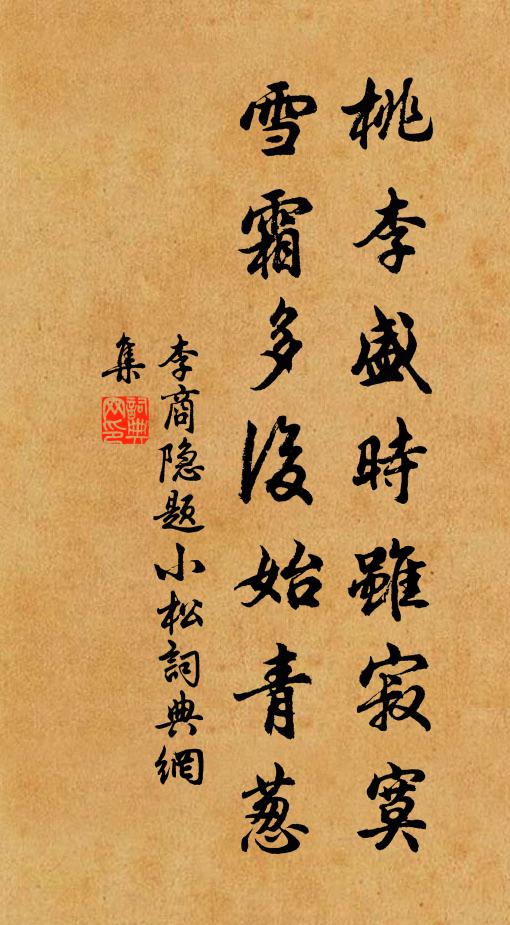 桃李盛時雖寂寞
雪霜多後始青葱
李商隐題小松詞典網
集
詞典網印